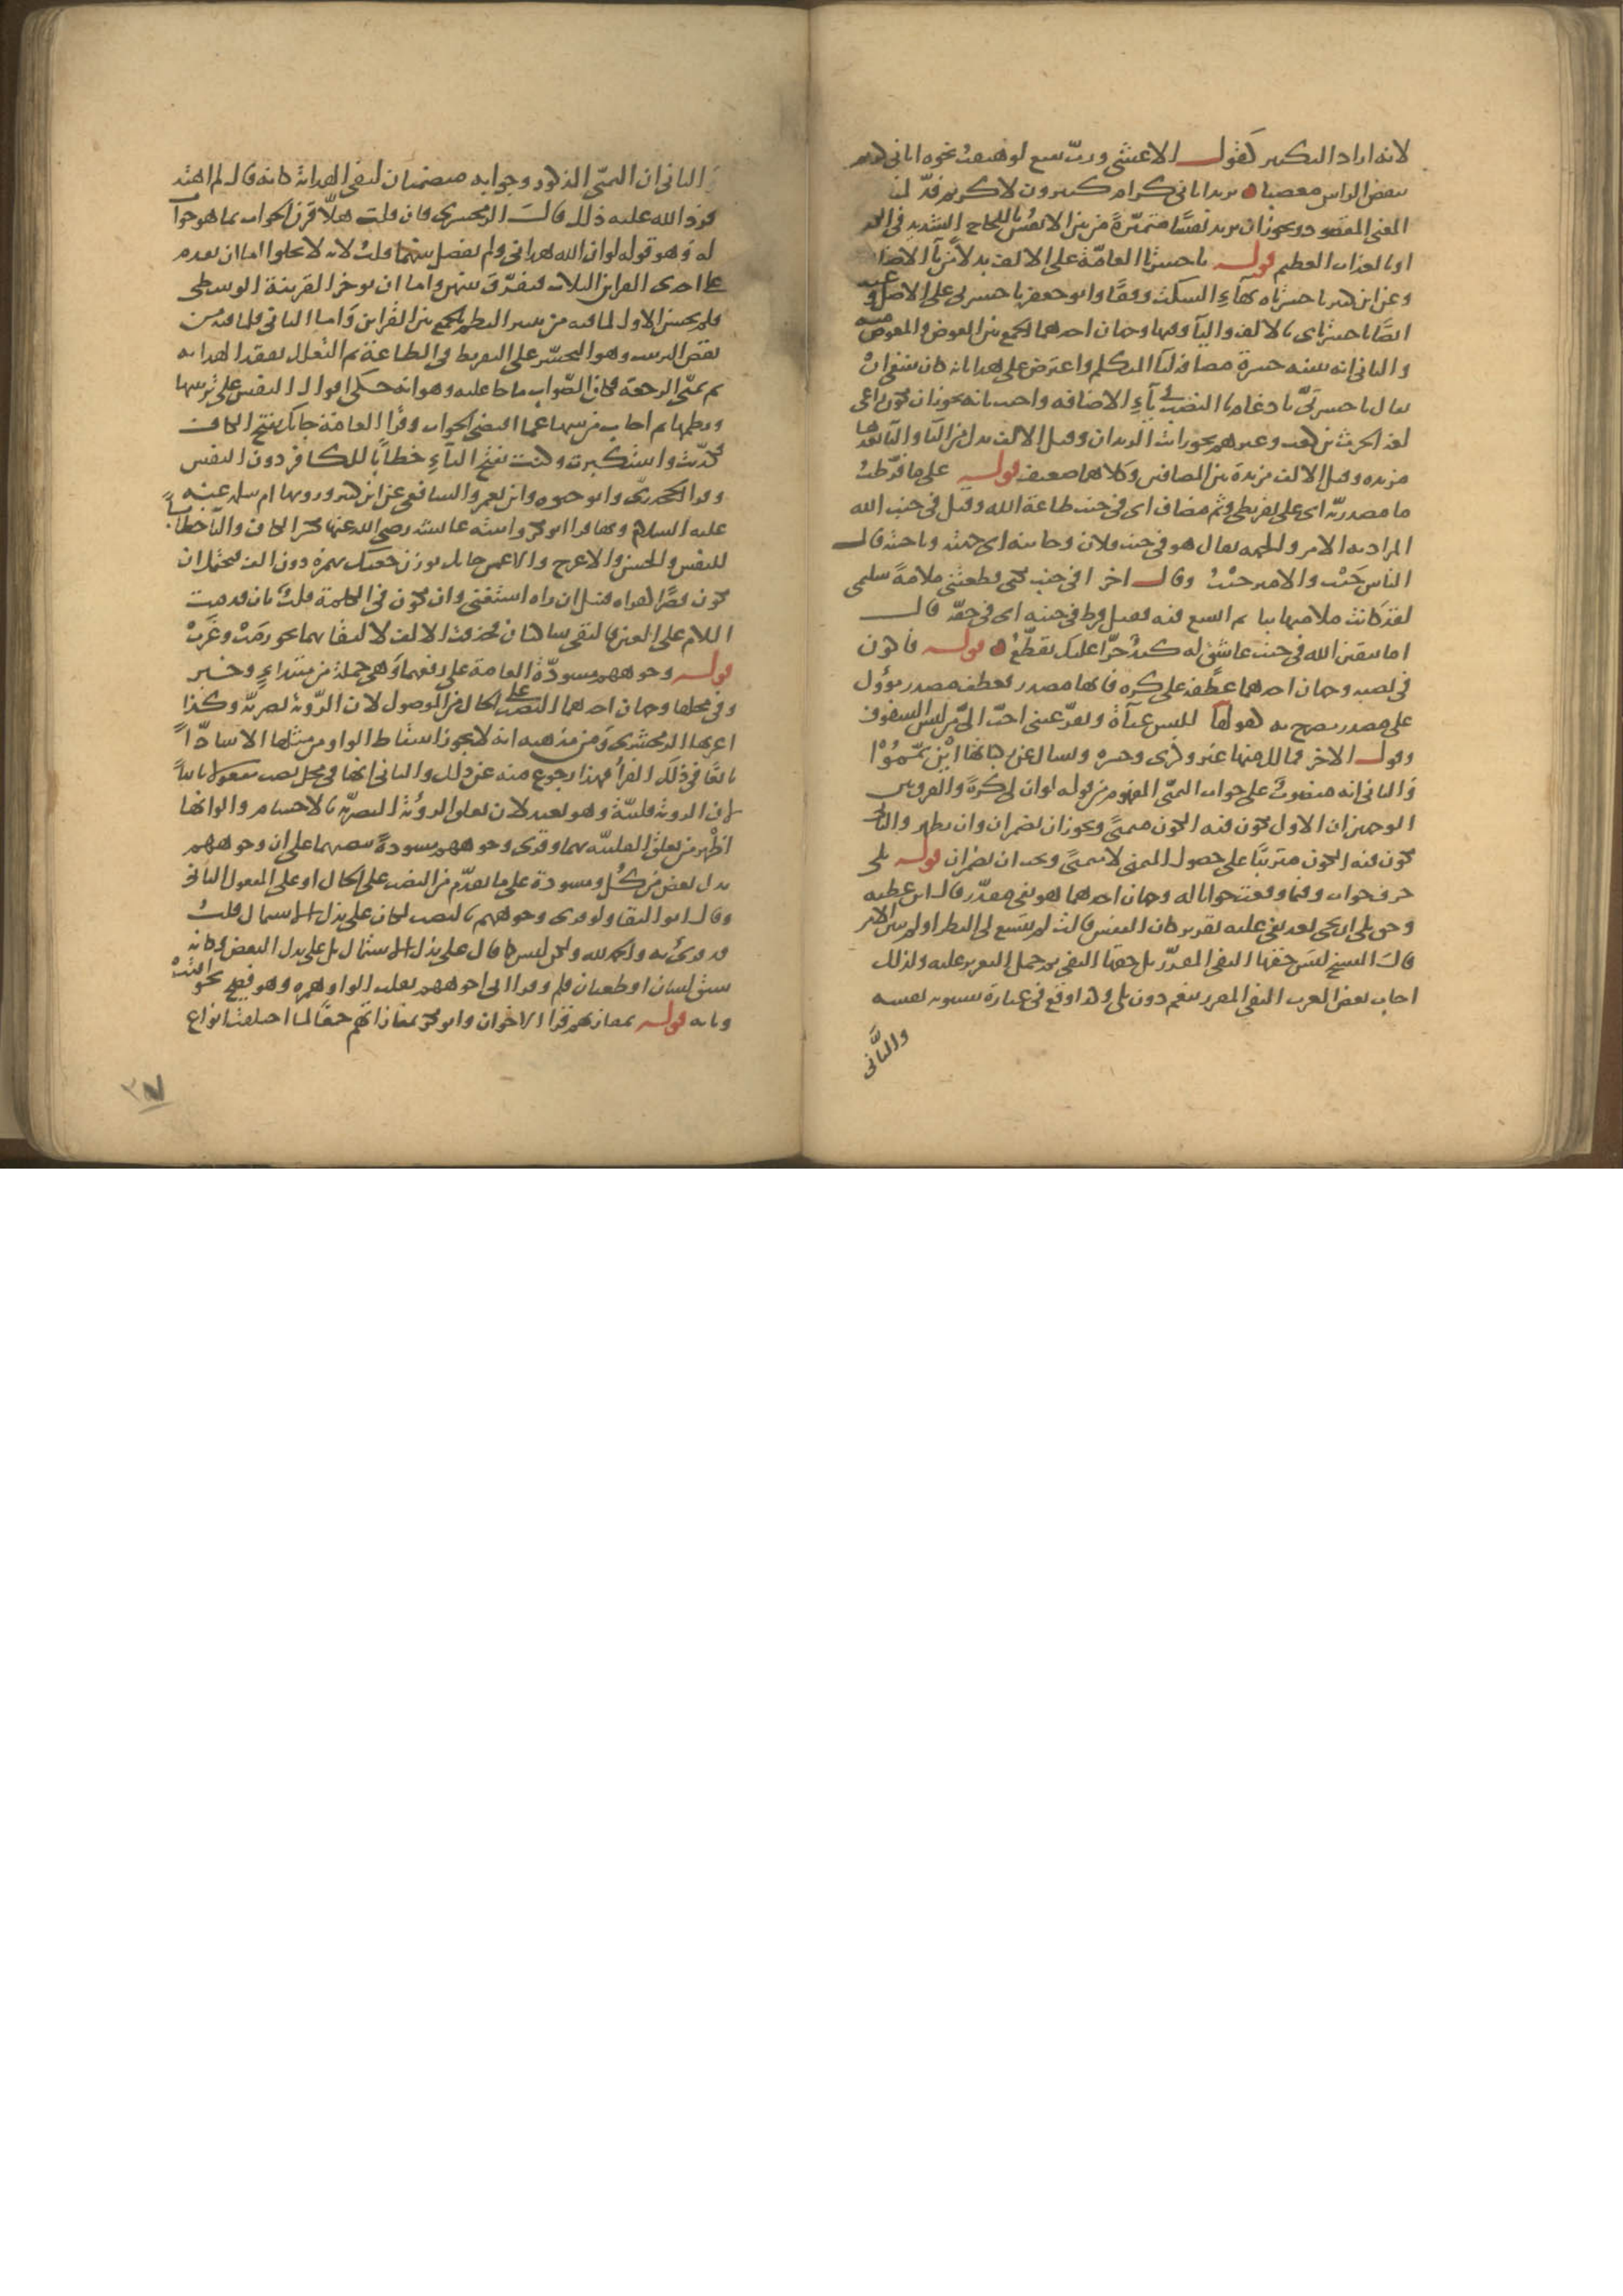 لانه اراد التكثير كقول الاعشى ورب بقيع لو هتفت بجوه اتانى كريم
ينفض الراس مغضبا يريد اتانى كرام كثيرون لا كريم فذ لمنافاته
المعنى المقصود ويجوز ان يريد نفسًا متميزةً من بين الانفس باللجاج الشديد فى الكفر
او بالعذاب العظيم قوله يا حسرتا العامّة على الالف بدلاً من يآ الاضافة
وعن ابن كثير يا حسرتاه بهآء السكت وقفًا وابو جعفر يا حسرتى على الاصل وعنه
ايضًا يا حسرتاى بالالف واليآ وفيها وجهان احدهما الجمع بين العوض والمعوض منه
والثانى انه تثنية حسرة مضافة ليآ المتكلم واعترض على هذا بانه كان ينبغى ان
يقال يا حسرتَىَّ بادغام يا النصب فى يآء الاضافه واجيب بانه يجوز ان يكون راعى
لغة الحرث بن كعب وغيرهم نحو رايت الزيدان وقيل الالف بدل من اليآ واليآ بعدها
مزيده وقيل الالف مزيدة بين المتضايفين وكلاهما ضعيف قوله على ما فرّطتُ
ما مصدريّه اى على تفريطى وثم مضاف اى فى جنب طاعة الله وقيل فى جنب الله
المراد به الامر والجهه يقال هو فى جنب فلان وجانبه اى جهته وناحيته قال
الناس جَنْب والامير جَنْبُ وقال اخر افى جنب بكر قطعتنى ملامةً سليمى
لقد كانت ملامتها ثنا ثم اتسع فيه فقيل فرط فى جنبه اى فى حقّه قال
اما تتقين الله فى جنب عاشق له كبدٌ حرّا عليك تقطّعُ قوله فاكون
فى نصبه وجهان احدهما عطفه على كره فانها مصدر فعطف مصدر مؤول
على مصدر مصرح به كقولها للبس عبآة وتقرّ عينى احبّ الىّ من لبس الشفوف
وقول الاخر فما لك منها غير ذكرى وحسرة وتسال عن ركبانها اين يمّموْا
والثانى انه منصوب على جواب التمنى المفهوم من قوله لو ان لى كرةً والفرق بين
الوجهين ان الاول يكون فيه الكون متمنىً ويجوز ان تضمر ان وان تظهر والثانى
يكون فيه الكون مترتبًا على حصول المتمنى لا متمنىً ويجب ان تضمر ان قوله بلى
حرف جواب وفيما وقعت جوابا له وجهان احدهما هو نفى مقدّر قال ابن عطيه
وحق بلى ان تجى بعد نفى عليه تقرير كان النفس قالت لم يتسع لى النظر او لم يتبين لى الامر
قال الشيخ ليس حقها النفى المقدّر بل حقها النفى ثم حمل التقرير عليه ولذلك
اجاب بعض العرب النفى المقرر بنعم دون بلى وكذا وقع فى عبارة سيبويه نفسه
والثانى
والثانى ان التمنى المذكور وجوابه متضمنان لنفى الهداية كانه قال لم اهتد
فرد الله عليه ذلك قال الزمخشرى فان قلت هلّا قرن الجواب بما هو جواب
له وهو قوله لو ان الله هدانى ولم يفصل بينهما قلتُ لانه لا يخلو اما ان يقدم
على احدى القراين الثلاث فيفرّق بينهن واما ان يوخر القرينة الوسطى
فلم يحسن الاول لما فيه من تبتير النظم بالجمع بين القراين واما الثانى فلما فيه من
نقض الترتيب وهو التحسّر على التفريط فى الطاعة ثم التعلل بفقد الهدايه
ثم تمنّى الرجعة فكان الصّواب ما جا عليه وهو انه حكى اقوال النفس على ترتيبها
ونظمها ثم اجاب من بينها عما اقتضى الجواب وقرا العامّة جاتك بفتح الكاف
فكذّبت واستكبرت وكنت بفتح التآء خطابًا للكافر دون النفس
وقرا الجحدرىّ وابو حيوه وابن يعمر والشافعى عن ابن كثير وروتها ام سلمه عنه
عليه السلام وبها قرا ابو بكر وابنته عائشه رضى الله عنهما بكسر الكاف والتآ خطابًا
للنفس والحسن والاعرج والاعمش جاتك بوزن جعتك بهمزه دون الف فيحتمل ان
يكون قصرًا كقراءه قنبل ان راه استغنى وان يكون فى الكلمة قلبٌ بان قدمت
اللام على العين فالتقى ساكنان فحذفت الالف لالتقائهما نحو رمَتْ وغزَتْ
قوله وجوههم مسودّة العامة على رفعهما وهى جملة من مبتداءٍ وخبر
وفى محلها وجهان احدهما النصب على الحال من الموصول لان الرّوية بصريّه وكذا
اعربها الزمخشرى ومن مذهبه انه لا يجوز اسقاط الواو من مثلها الا شاذّاً
تابعًا فى ذلك الفرآ فهذا رجوع منه عن ذلك والثانى انها فى محل نصب مفعولا ثانياً
لان الروية قلبيّة وهو بعيد لان تعلق الروية البصريّه بالاجسام والوانها
اظهر من تعلق القلبيّه بهما وقرى وجوههم مسودةً بنصبهما على ان وجوههم
بدل بعض من كُل ومسودة على ما تقدّم من النصب على الحال او على المفعول الثانى
وقال ابو البقا ولو قرى وجوههم بالنصب لكان على بدل الاشتمال قلتُ
قد قرئ به والحمد لله ولكن ليس كما قال على بدل الاشتمال بل على بدل البعض وكانه
سبق لسان او طغيان قلم وقرا ابى اجوههم بقلب الواو همزه وهو فصيح نحو اقتتْ
وبابه قوله بمفازتهم قرا الاخوان وابو بكر بمفازاتهم جمعًا لما اختلفت انواع
٣٧